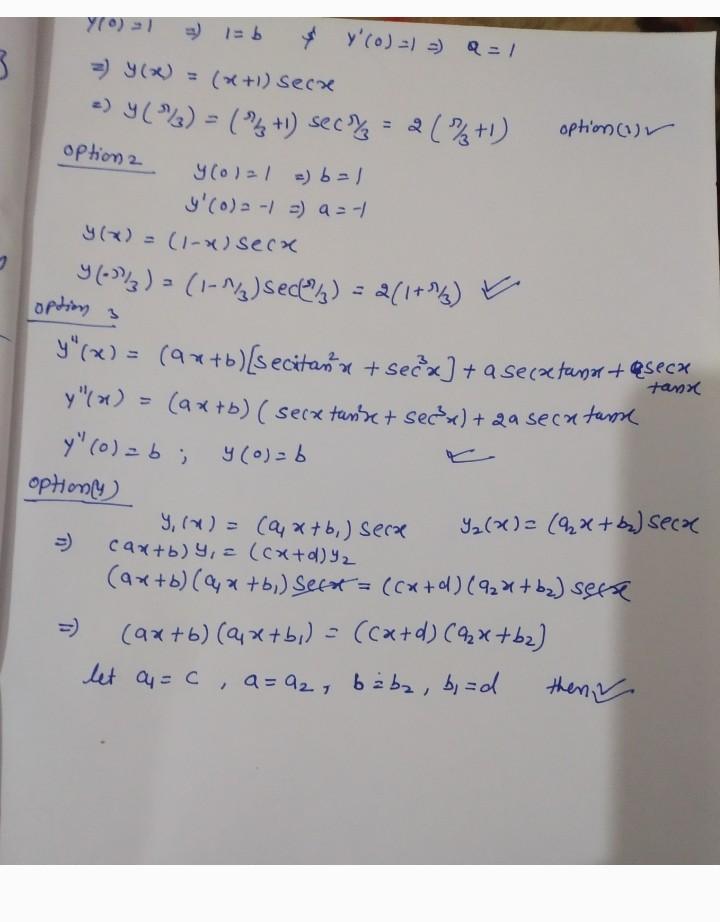 y(0)=1 ⇒ 1=b & y'(0)=1 ⇒ a=1
⇒ y(x) = (x+1) secx
⇒ y(π/3) = (π/3+1) sec π/3 = 2(π/3+1) option(1)✓
option 2
y(0)=1 ⇒ b=1
y'(0)=-1 ⇒ a=-1
y(x) = (1-x) secx
y(-π/3) = (1-π/3) sec(π/3) = 2(1+π/3) ✓
option 3
y''(x) = (ax+b)[secxtan²x + sec³x] + a secx tanx + a secx
tanx
y''(x) = (ax+b)(secx tan²x + sec³x) + 2a secx tanx
y''(0) = b ; y(0) = b ✓
option(4)
y₁(x) = (a₁x+b₁) secx y₂(x) = (a₂x+b₂) secx
⇒ (ax+b)y₁ = (cx+d)y₂
(ax+b)(a₁x+b₁) secx = (cx+d)(a₂x+b₂) secx
⇒ (ax+b)(a₁x+b₁) = (cx+d)(a₂x+b₂)
let a₁ = c , a = a₂ , b = b₂ , b₁ = d then ✓